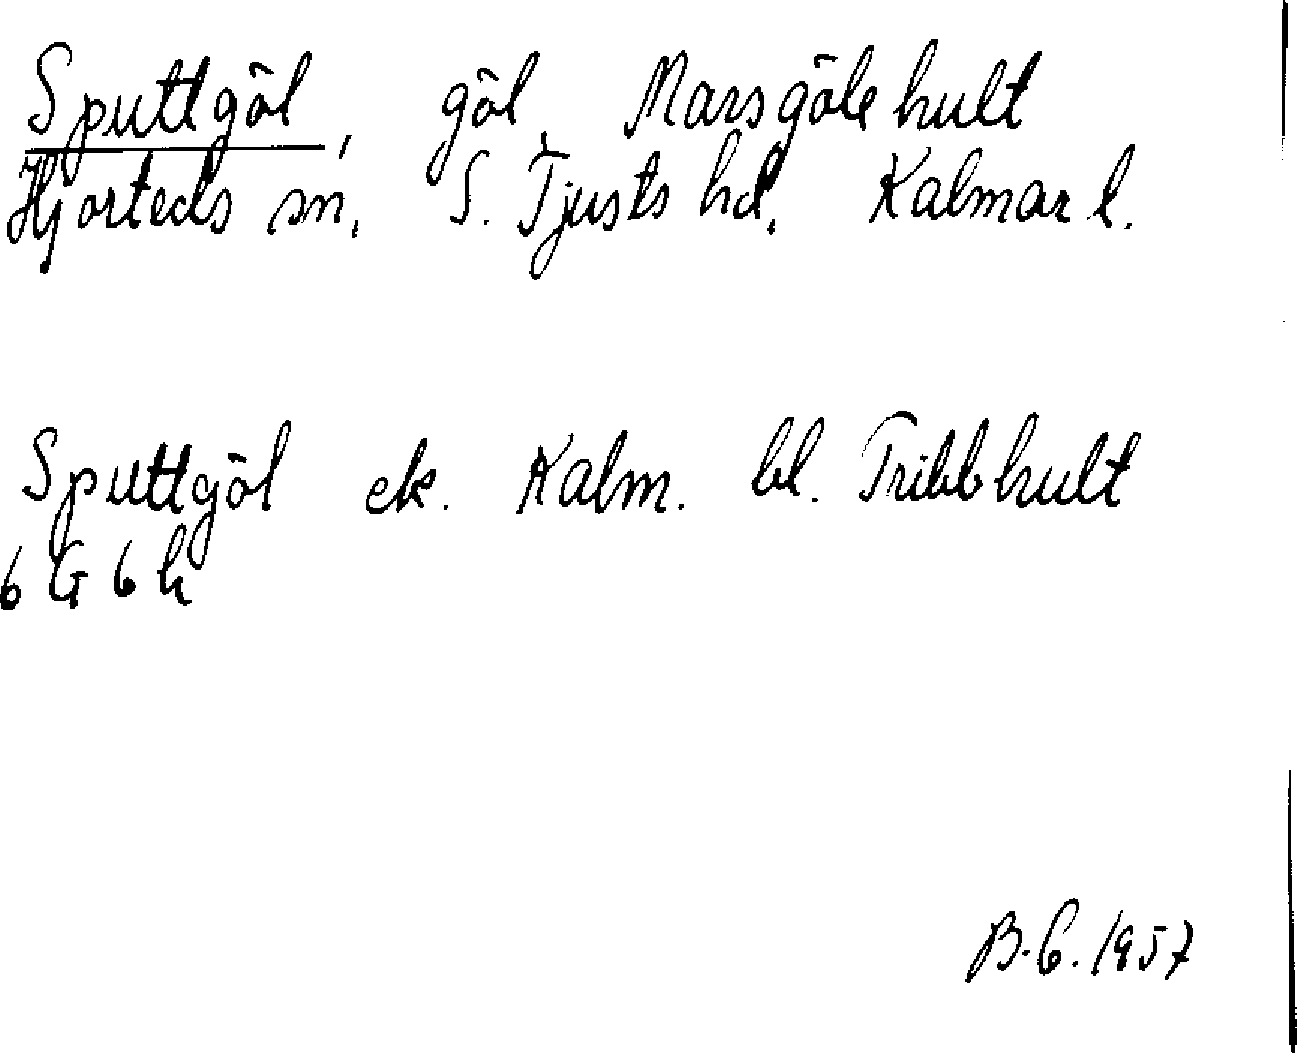 Sputtgöl, göl, Marsgölehult
Hjorteds sn, S. Tjusts hd, Kalmar l.
Sputtgöl ek. Kalm. bl. Tribbhult
6 G 6 h
B.G. 1957